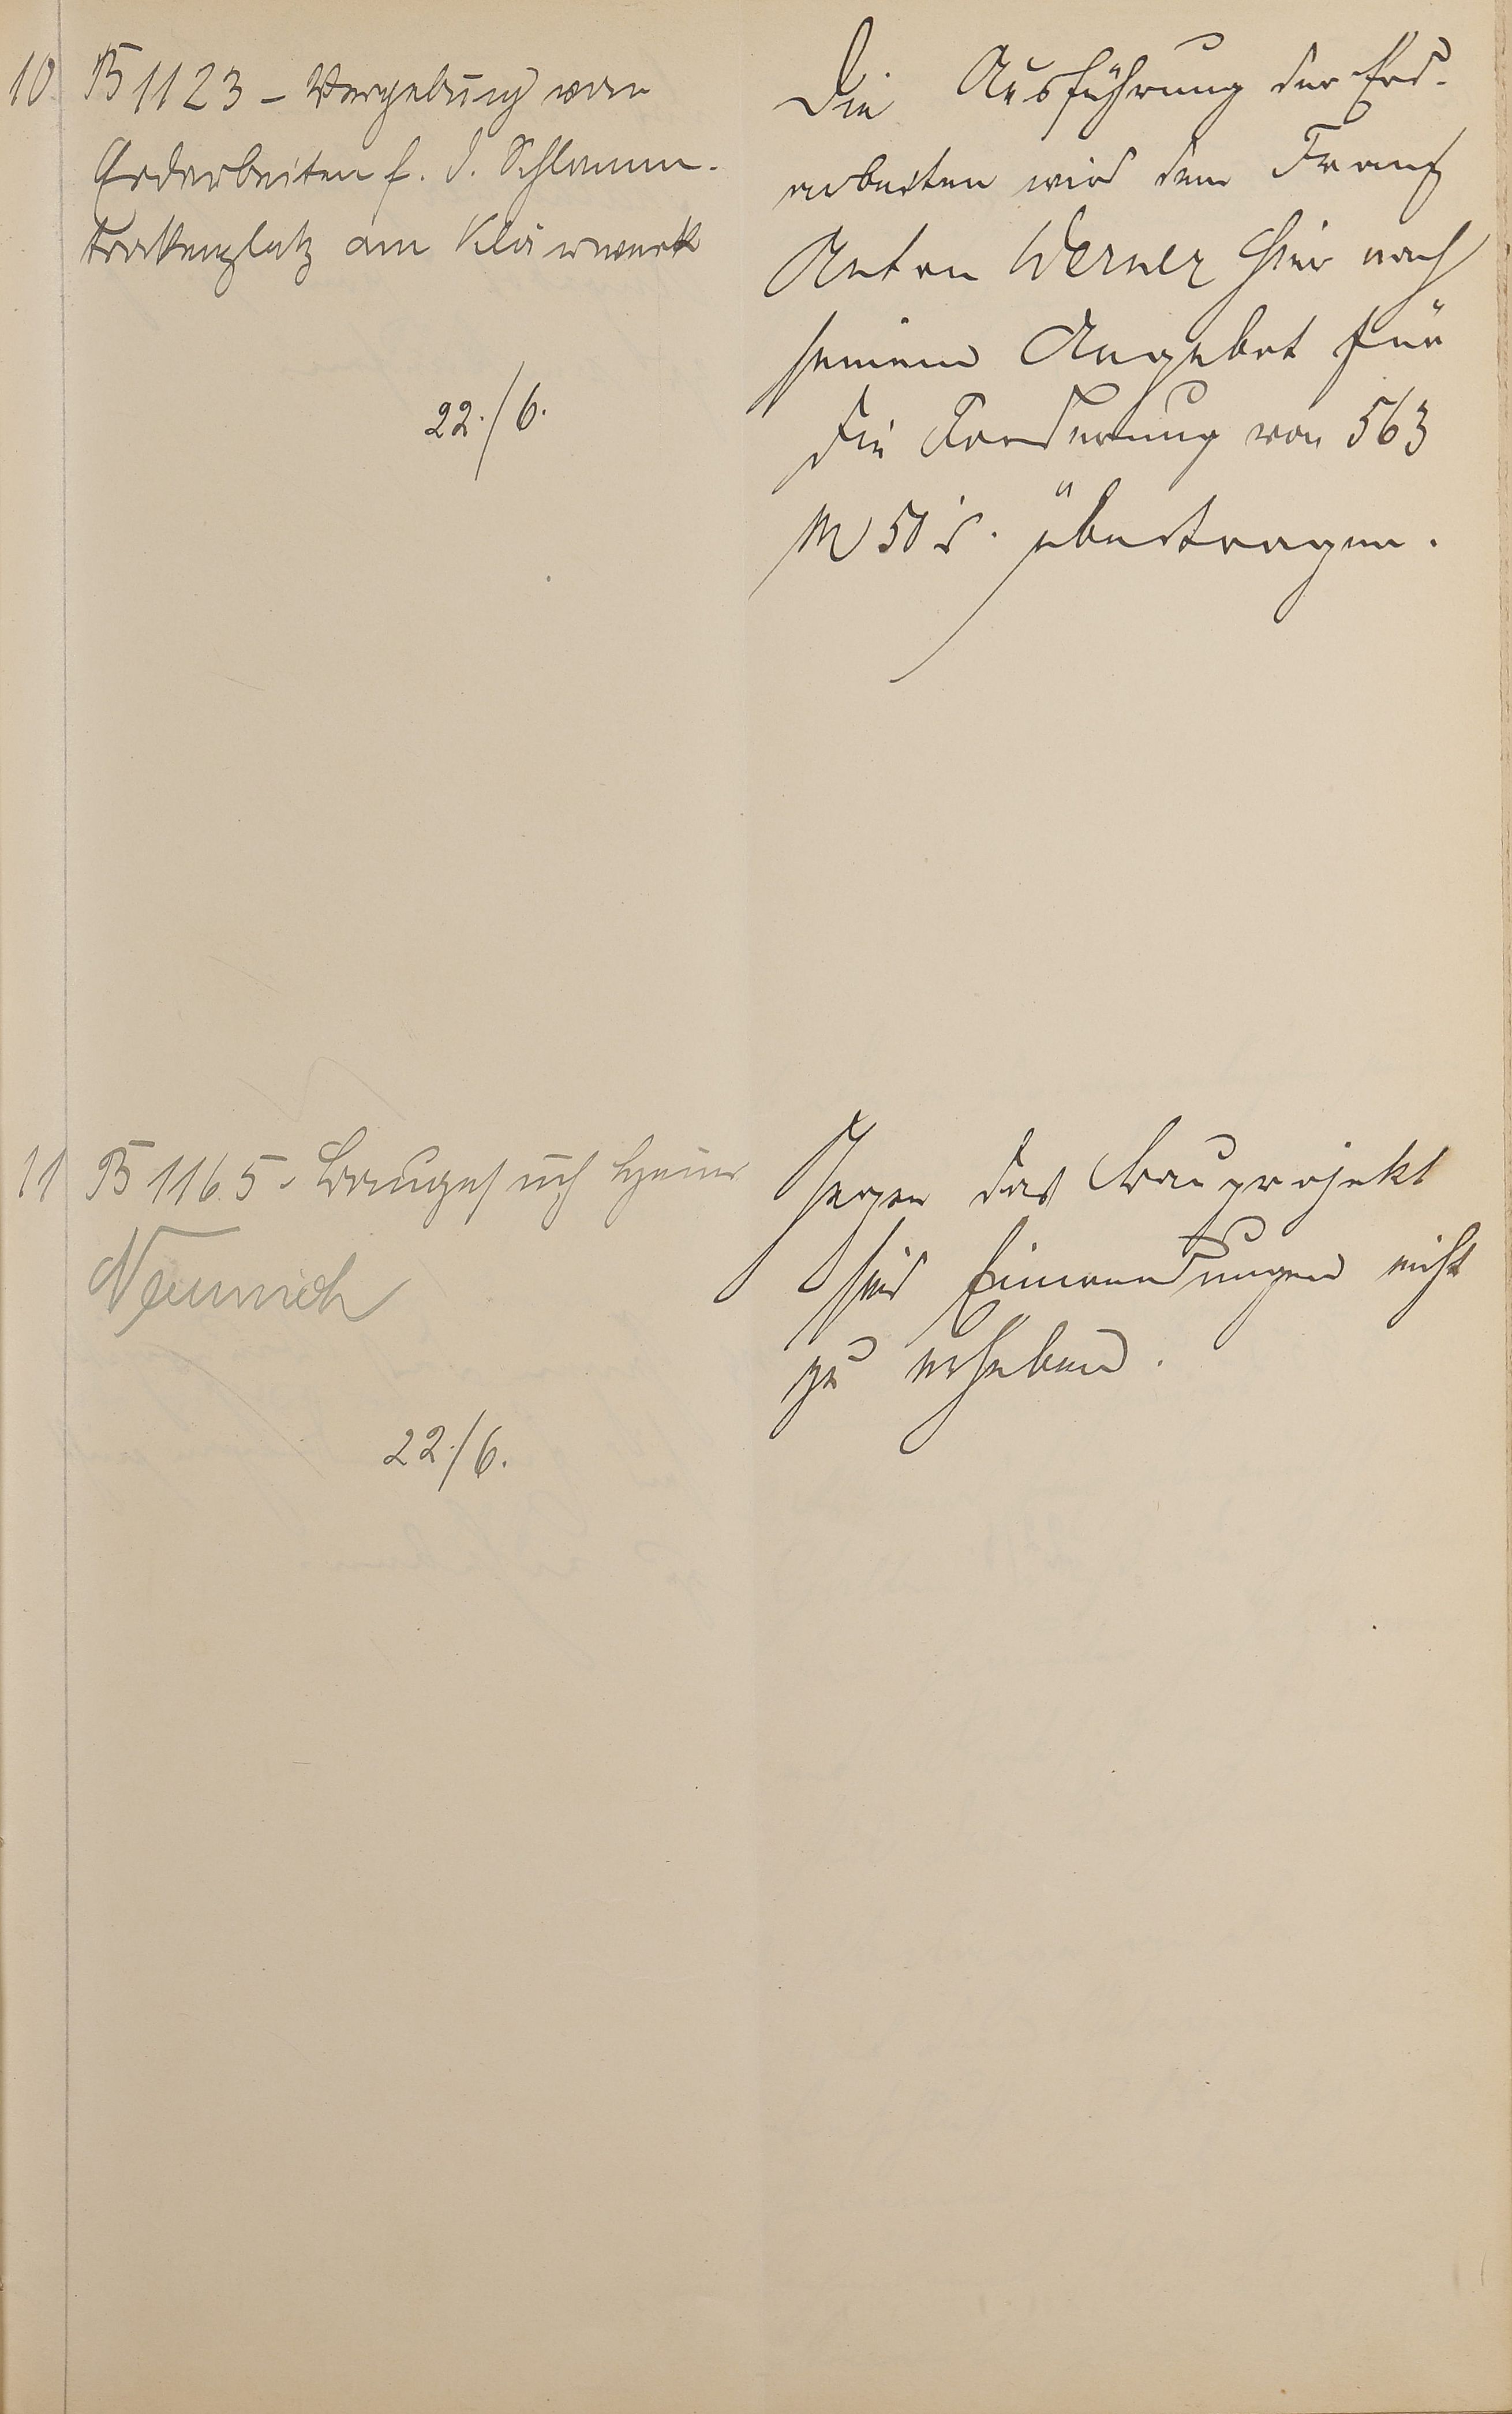 10
B 1123 - Vergebung von
Erdarbeiten f. d. Schlamm-
trockenplatz am Klärwerk
22./6.
Die Ausführung der Erd-
arbeiten wird dem Franz
Anton Werner hier nach
seinem Angebot für
die Forderung von 563
M 50 d. übertragen.
11
B 1165 - Baugesuch Heinr
Neunich
22./6.
Gegen das Bauprojekt
sind Einwendungen nicht
zu erheben.